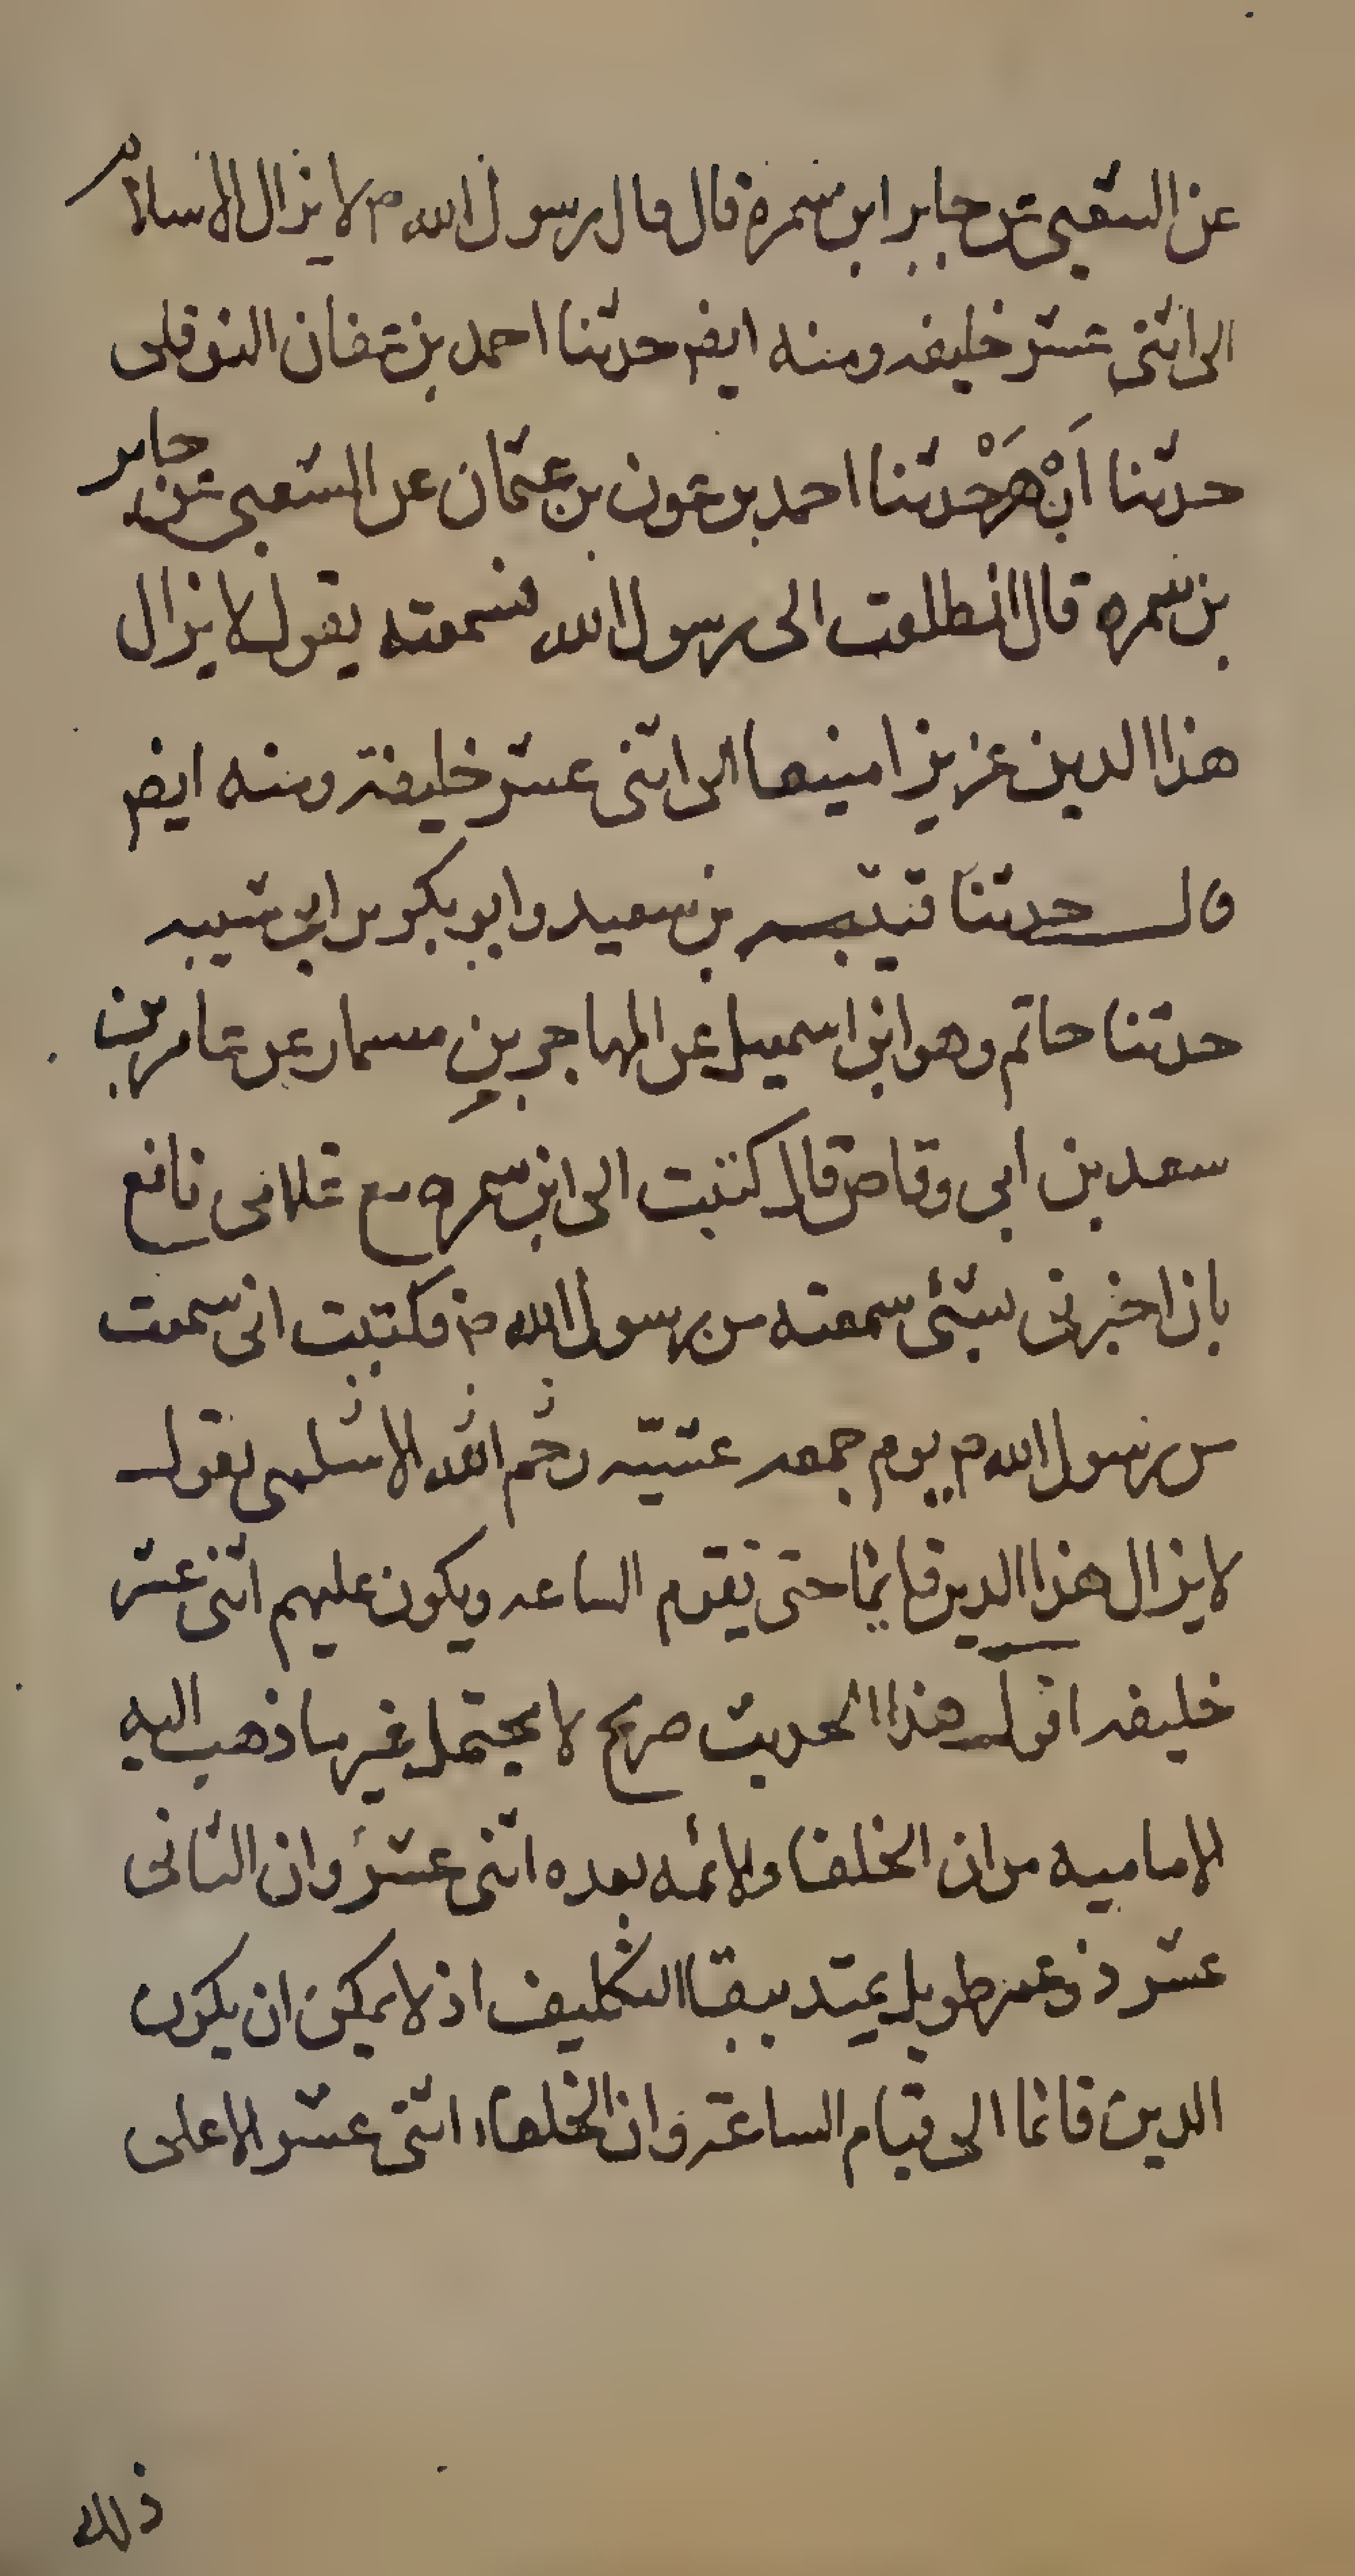 عن الشعبي عن جابر ابن سمرة قال قال رسول الله ص لا يزال الاسلام
الى اثنى عشر خليفه ومنه ايضر حدثنا احمد بن عفان النوفلى
حدثنا ازهر حدثنا احمد بن عون بن عثمان عن الشعبي عن جابر
بن سمره قال انطلقت الى رسول الله فسمعته يقول لا يزال
هذا الدين عزيز امنيعا الى اثنى عشر خليفة ومنه ايضر
قال حدثنا قتيبه بن سعيد وابو بكر بن ابى شيبه
حدثنا حاتم وهو ابن اسمعيل عن المهاجر بن مسمار عن عامر بن
سعد بن ابى وقاص قال كتبت الى ابن سمره مع غلامى نافع
بان اخبرنى بشئ سمعته من رسول الله ص فكتبت انى سمعت
من رسول الله ص يوم جمعه عشيه رجم الاسلمى يقول
لا يزال هذا الدين قائما حتى تقوم الساعه ويكون عليهم اثنى عشر
خليفه اقول هذا الحديث صريح لا يحتمل غير ما ذهب اليه
الاماميه من ان الخلفا والائمه بعده اثنى عشر وان الثانى
عشر ذو عمر طويل يمتد ببقا التكليف اذ لا يمكن ان يكون
الدين قائما الى قيام الساعة وان الخلفاء اثنى عشر الا على
ذلك